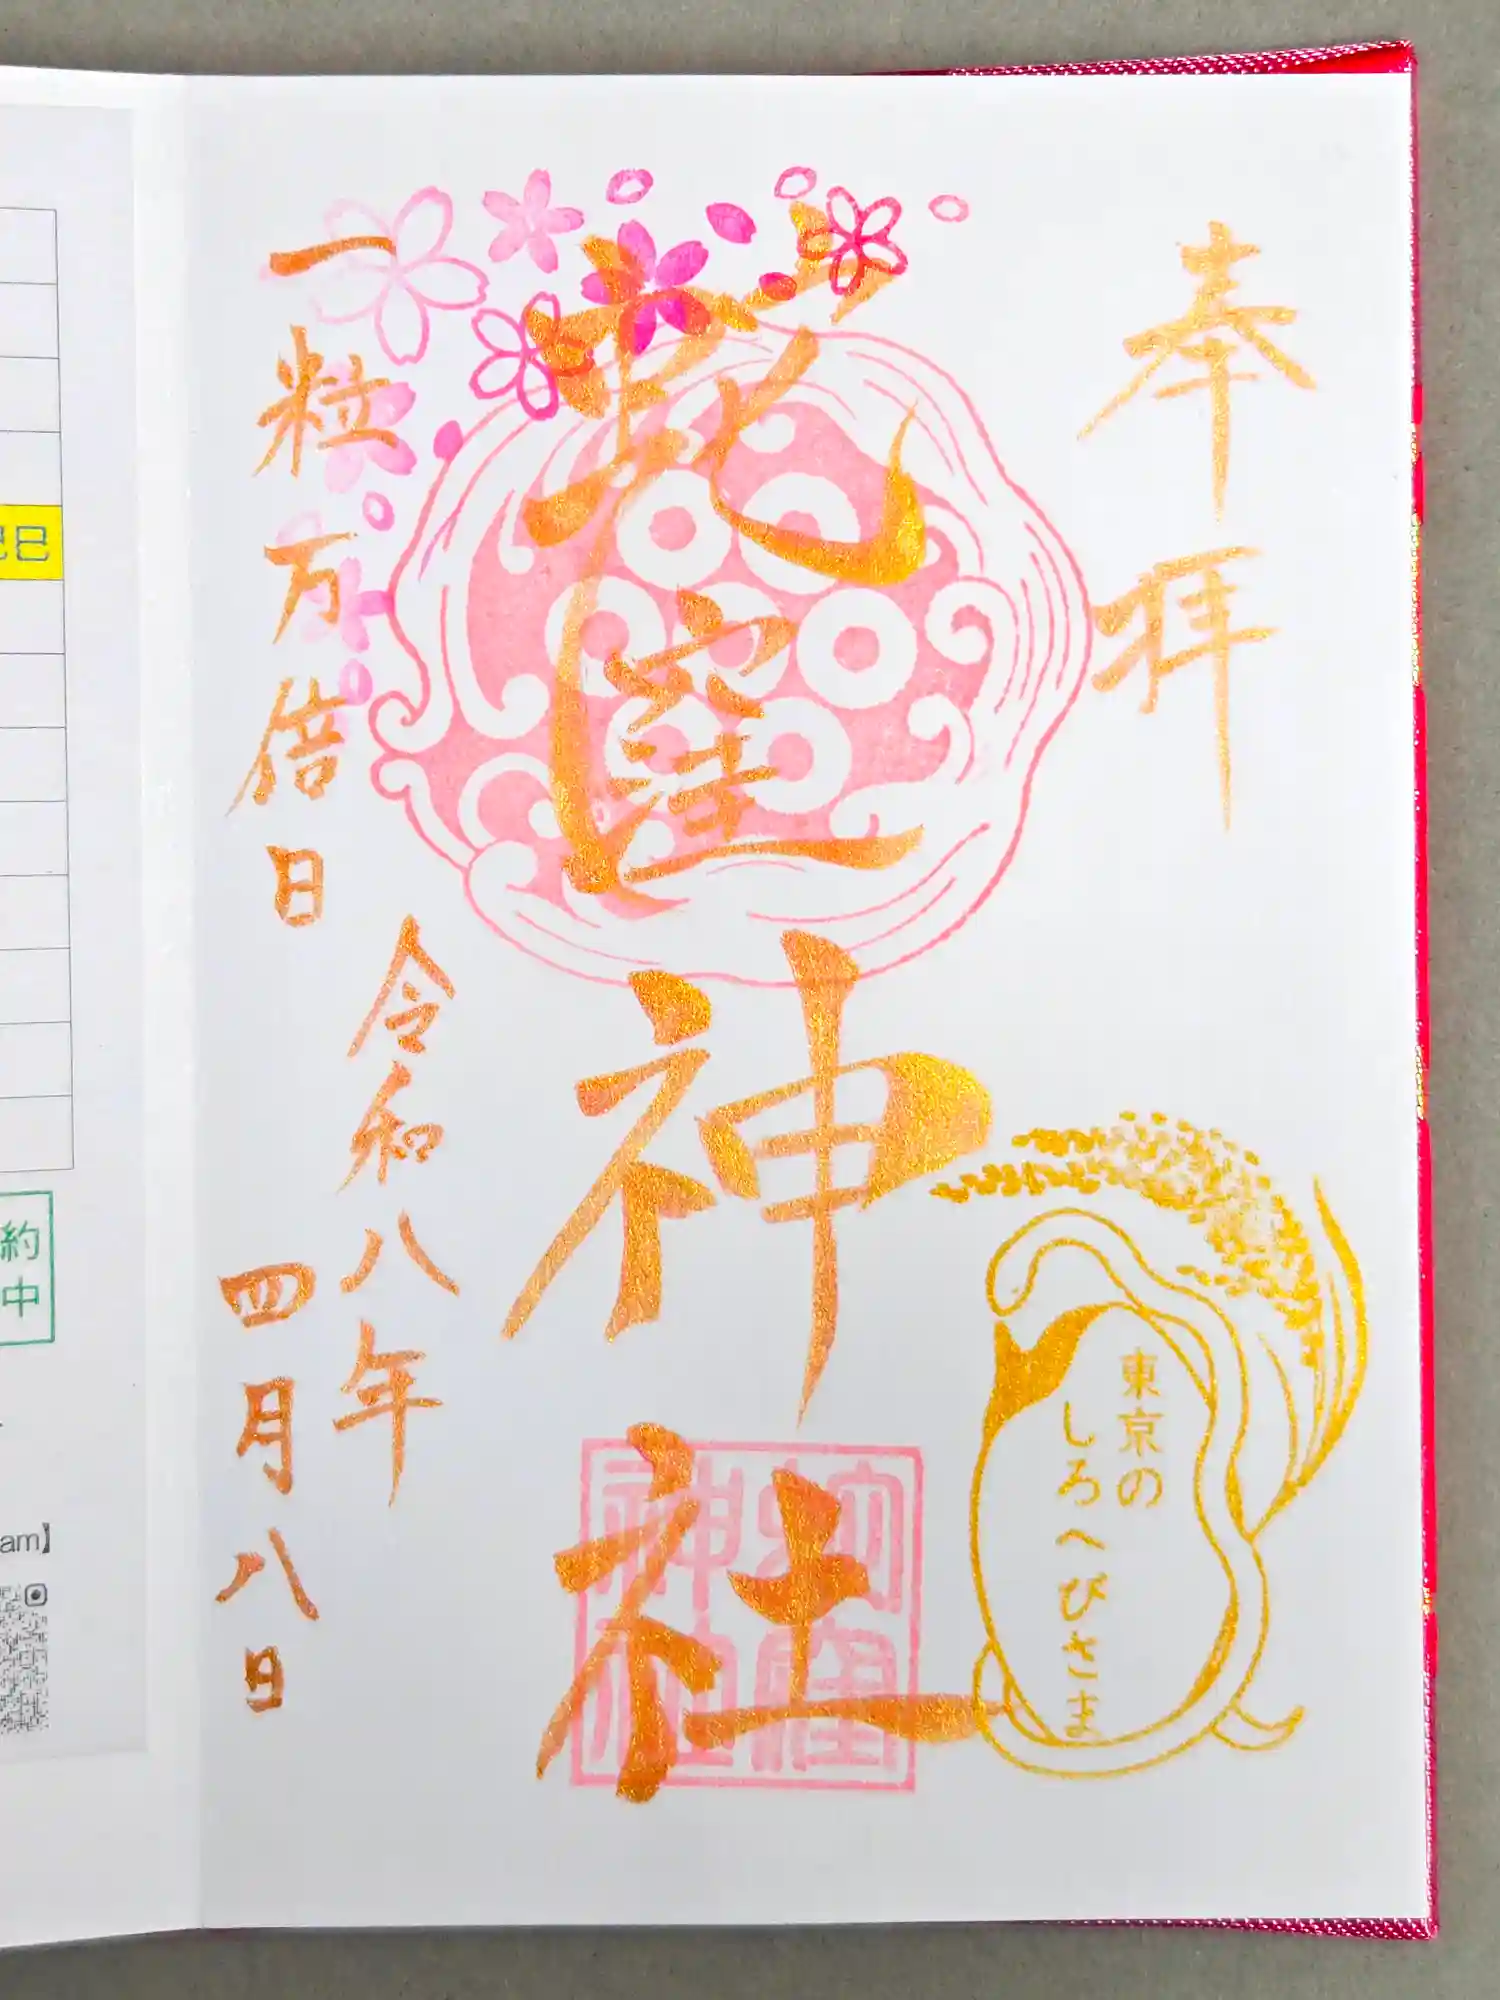 奉拝
東京の
しろへびさま
蛇窪神社
蛇窪
神社
令和八年
一粒万倍日
四月八日
巳
約
中
am】